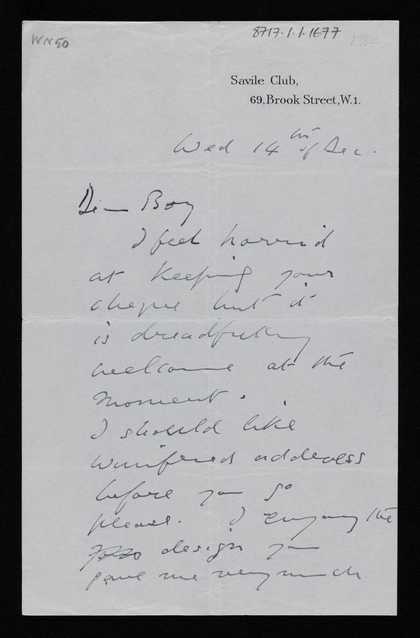 WN50
8717.1.1.1677
Savile Club,
69, Brook Street, W.1.
Wed 14th of Dec.
Dear Boy
I feel horrid
at keeping your
cheque but it
is dreadfully
welcome at the
moment.
I should like
Winifreds address
before you go
please. I enjoy the
design you
gave me very much